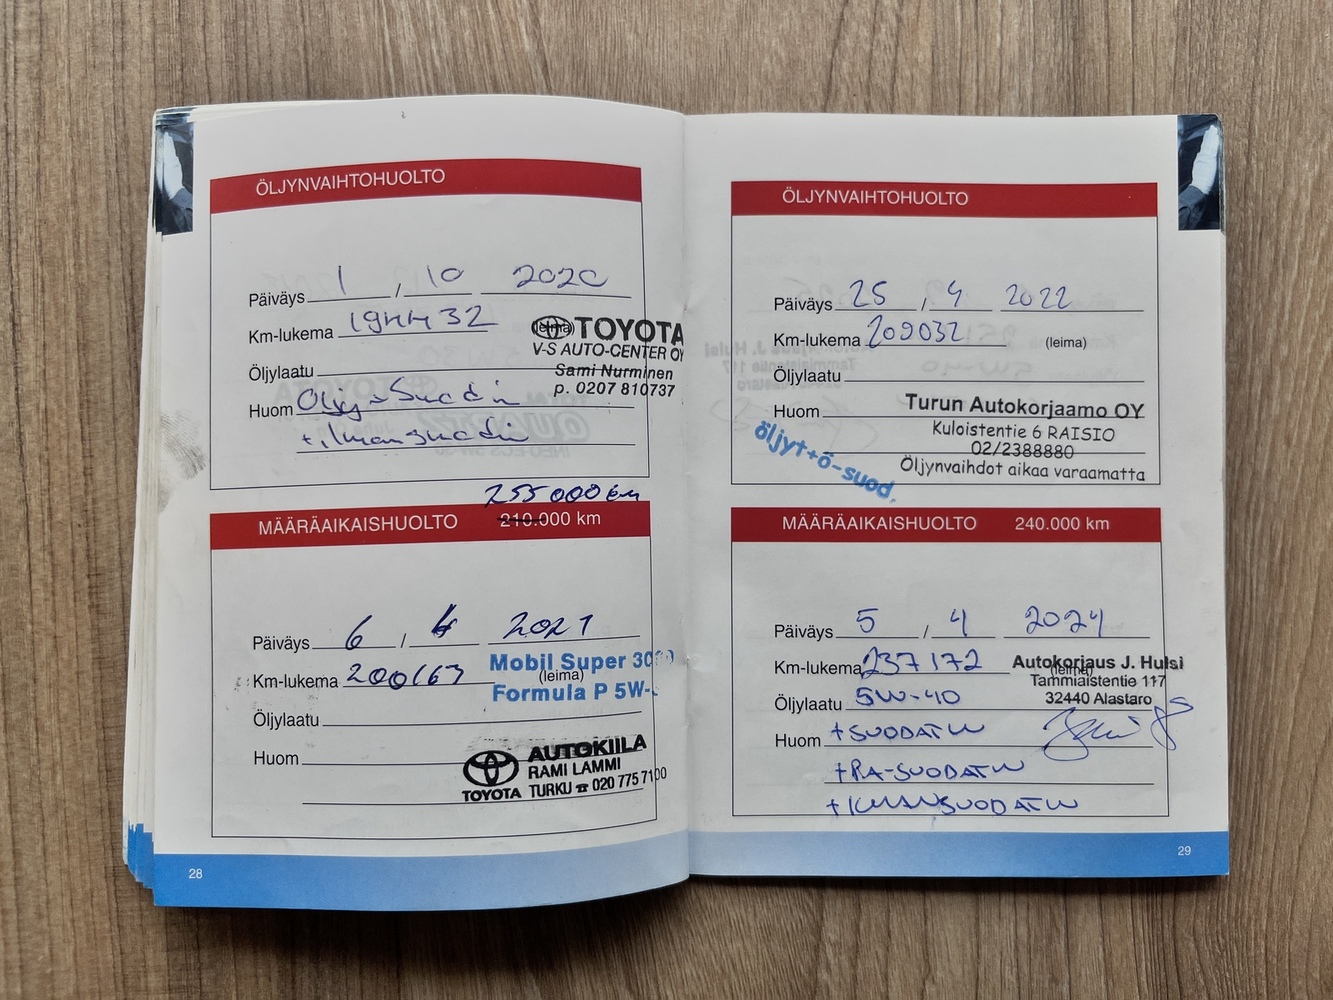 ÖLJYNVAIHTOHUOLTO
Päiväys 1 / 10 2020
Km-lukema 194432 (leima)
TOYOTA
V-S AUTO-CENTER OY
Sami Nurminen
p. 0207 810737
Öljylaatu
Huom Öljy + Suodin
+ ilmansuodin
255000 km
MÄÄRÄAIKAISHUOLTO 210.000 km
Päiväys 6 / 4 2021
Km-lukema 200163 (leima)
Mobil Super 3000
Formula P 5W-
Öljylaatu
Huom
TOYOTA
AUTOKIILA
RAMI LAMMI
TURKU ☎ 020 775 7100
28
ÖLJYNVAIHTOHUOLTO
Päiväys 25 / 4 2022
Km-lukema 209032 (leima)
Öljylaatu
Huom
Turun Autokorjaamo OY
Kuloistentie 6 RAISIO
02/2388880
Öljynvaihdot aikaa varaamatta
öljyt+ö-suod.
MÄÄRÄAIKAISHUOLTO 240.000 km
Päiväys 5 / 4 2024
Km-lukema 237172 (leima)
Autokorjaus J. Hulsi
Tammiaistentie 117
32440 Alastaro
Öljylaatu 5W-40
Huom + SUODATIN
+ RA-SUODATIN
+ ILMANSUODATIN
29